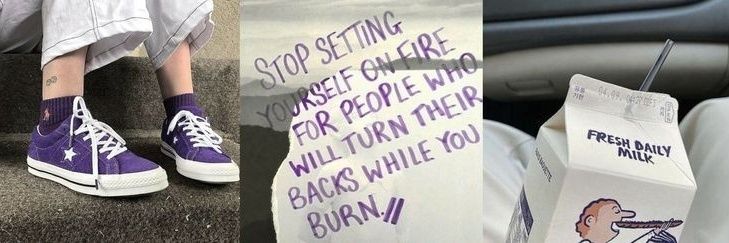 STOP SETTING
YOURSELF ON FIRE
FOR PEOPLE WHO
WILL TURN THEIR
BACKS WHILE YOU
BURN.
FRESH DAILY
MILK